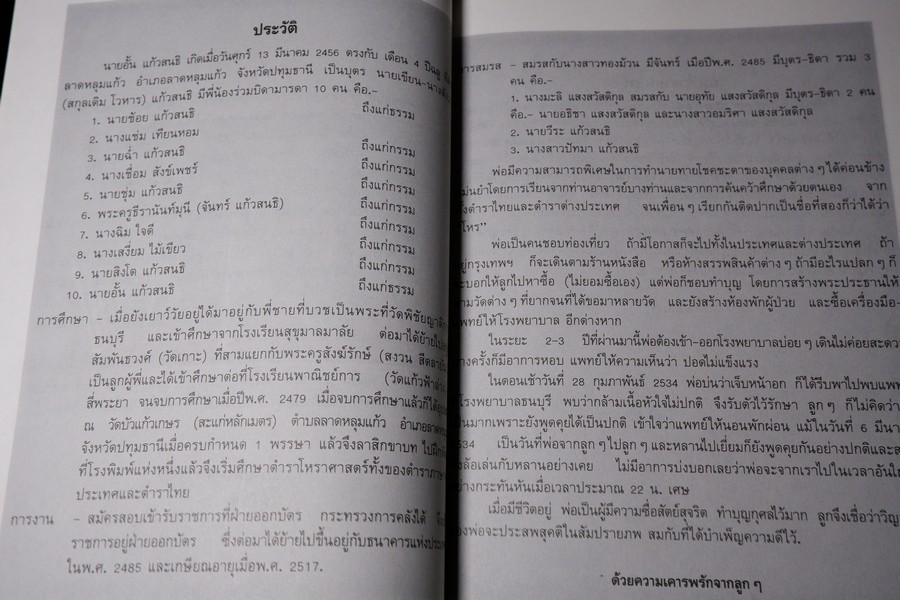 ประวัติ
นายอั้น แก้วสนธิ เกิดเมื่อวันศุกร์ 13 มีนาคม 2456 ตรงกับ เดือน 4 ปีฉลู
ลาดหลุมแก้ว อำเภอลาดหลุมแก้ว จังหวัดปทุมธานี เป็นบุตร นายเขียน-นาง
(สกุลเดิม โวหาร) แก้วสนธิ มีพี่น้องร่วมบิดามารดา 10 คน คือ.-
1. นายช้อย แก้วสนธิ ถึงแก่กรรม
2. นางแช่ม เทียนหอม
3. นายฉ่ำ แก้วสนธิ ถึงแก่กรรม
4. นางเชื่อม สังข์เพชร์ ถึงแก่กรรม
5. นายชุ่ม แก้วสนธิ ถึงแก่กรรม
6. พระครูธีรานันท์มุนี (จันทร์ แก้วสนธิ) ถึงแก่กรรม
7. นางฉิม ใจดี ถึงแก่กรรม
8. นางเสงี่ยม ไม้เขียว ถึงแก่กรรม
9. นายสิงโต แก้วสนธิ ถึงแก่กรรม
10. นายอั้น แก้วสนธิ ถึงแก่กรรม
การศึกษา - เมื่อยังเยาว์วัยอยู่ได้มาอยู่กับพี่ชายที่บวชเป็นพระที่วัดพิชัยญาติ
ธนบุรี และเข้าศึกษาจากโรงเรียนสุขุมาลมาลัย ต่อมาได้ย้ายไป
สัมพันธวงศ์ (วัดเกาะ) ที่สามแยกกับพระครูสังฆ์รักษ์ (สงวน
เป็นลูกผู้พี่และได้เข้าศึกษาต่อที่โรงเรียนพาณิชย์การ (วัดแก้วฟ้า
สี่พระยา จนจบการศึกษาเมื่อปีพ.ศ. 2479 เมื่อจบการศึกษาแล้วก็ได้
ณ วัดบัวแก้วเกษร (สะแก่หลักเมตร) ตำบลลาดหลุมแก้ว อำเภอลาด
จังหวัดปทุมธานีเมื่อครบกำหนด 1 พรรษา แล้วจึงลาสิกขาบท ไป
ที่โรงพิมพ์แห่งหนึ่งแล้วจึงเริ่มศึกษาตำราโหราศาสตร์ทั้งของตำราภาษา
ประเทศและตำราไทย
การงาน - สมัครสอบเข้ารับราชการที่ฝ่ายออกบัตร กระทรวงการคลังได้
ราชการอยู่ฝ่ายออกบัตร ซึ่งต่อมาได้ย้ายไปขึ้นอยู่กับธนาคารแห่งประเทศ
ในพ.ศ. 2485 และเกษียณอายุเมื่อพ.ศ. 2517.
การสมรส - สมรสกับนางสาวทองม้วน มีจันทร์ เมื่อปีพ.ศ. 2485 มีบุตร-ธิดา รวม 3
คน คือ.-
1. นางมะลิ แสงสวัสดิกุล สมรสกับ นายอุทัย แสงสวัสดิกุล มีบุตร-ธิดา 2 คน
คือ.- นายอธิชา แสงสวัสดิกุล และนางสาวอมริศา แสงสวัสดิกุล
2. นายวีระ แก้วสนธิ
3. นางสาวปัทมา แก้วสนธิ
พ่อมีความสามารถพิเศษในการทำนายทายโชคชะตาของบุคคลต่าง ๆ ได้ค่อนข้าง
แม่นยำโดยการเรียนจากท่านอาจารย์บางท่านและจากการค้นคว้าศึกษาด้วยตนเอง จาก
ทั้งตำราไทยและตำราต่างประเทศ จนเพื่อน ๆ เรียกกันติดปากเป็นชื่อที่สองก็ว่าได้ว่า
โหร”
พ่อเป็นคนชอบท่องเที่ยว ถ้ามีโอกาสก็จะไปทั้งในประเทศและต่างประเทศ ถ้า
อยู่กรุงเทพฯ ก็จะเดินตามร้านหนังสือ หรือห้างสรรพสินค้าต่าง ๆ ถ้ามีอะไรแปลก ๆ ก็
จะบอกให้ลูกไปหาซื้อ (ไม่ยอมซื้อเอง) แต่พ่อก็ชอบทำบุญ โดยการสร้างพระประธานให้
ตามวัดต่าง ๆ ที่ยากจนที่ได้ขอมาหลายวัด และยังสร้างห้องพักผู้ป่วย และซื้อเครื่องมือ
แพทย์ให้โรงพยาบาล อีกต่างหาก
ในระยะ 2-3 ปีที่ผ่านมานี้พ่อต้องเข้า-ออกโรงพยาบาลบ่อย ๆ เดินไม่ค่อยสะดวก
บางครั้งก็มีอาการหอบ แพทย์ให้ความเห็นว่า ปอดไม่แข็งแรง
ในตอนเช้าวันที่ 28 กุมภาพันธ์ 2534 พ่อบ่นว่าเจ็บหน้าอก ก็ได้รีบพาไปพบแพทย์
โรงพยาบาลธนบุรี พบว่ากล้ามเนื้อหัวใจไม่ปกติ จึงรับตัวไว้รักษา ลูก ๆ ก็ไม่คิดว่า
มากเพราะยังพูดคุยได้เป็นปกติ เข้าใจว่าแพทย์ให้นอนพักผ่อน แม้ในวันที่ 6 มีนา
2534 เป็นวันที่พ่อจากลูก ๆ ไปลูก ๆ และหลานไปเยี่ยมก็ยังพูดคุยกันอย่างปกติและ
ล้อเล่นกับหลานอย่างเคย ไม่มีอาการบ่งบอกเลยว่าพ่อจะจากเราไปในเวลาอัน
อย่างกระทันหันเมื่อเวลาประมาณ 22 น. เศษ
เมื่อมีชีวิตอยู่ พ่อเป็นผู้มีความซื่อสัตย์สุจริต ทำบุญกุศลไว้มาก ลูกจึงเชื่อว่า
ของพ่อจะประสพสุคติในสัมปรายภพ สมกับที่ได้บำเพ็ญความดีไว้.
ด้วยความเคารพรักจากลูก ๆ